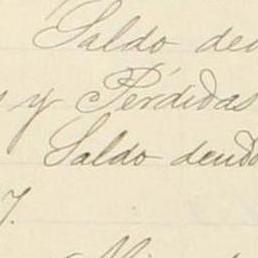 Saldo deu
s y Pérdidas
Saldo deudo
7.